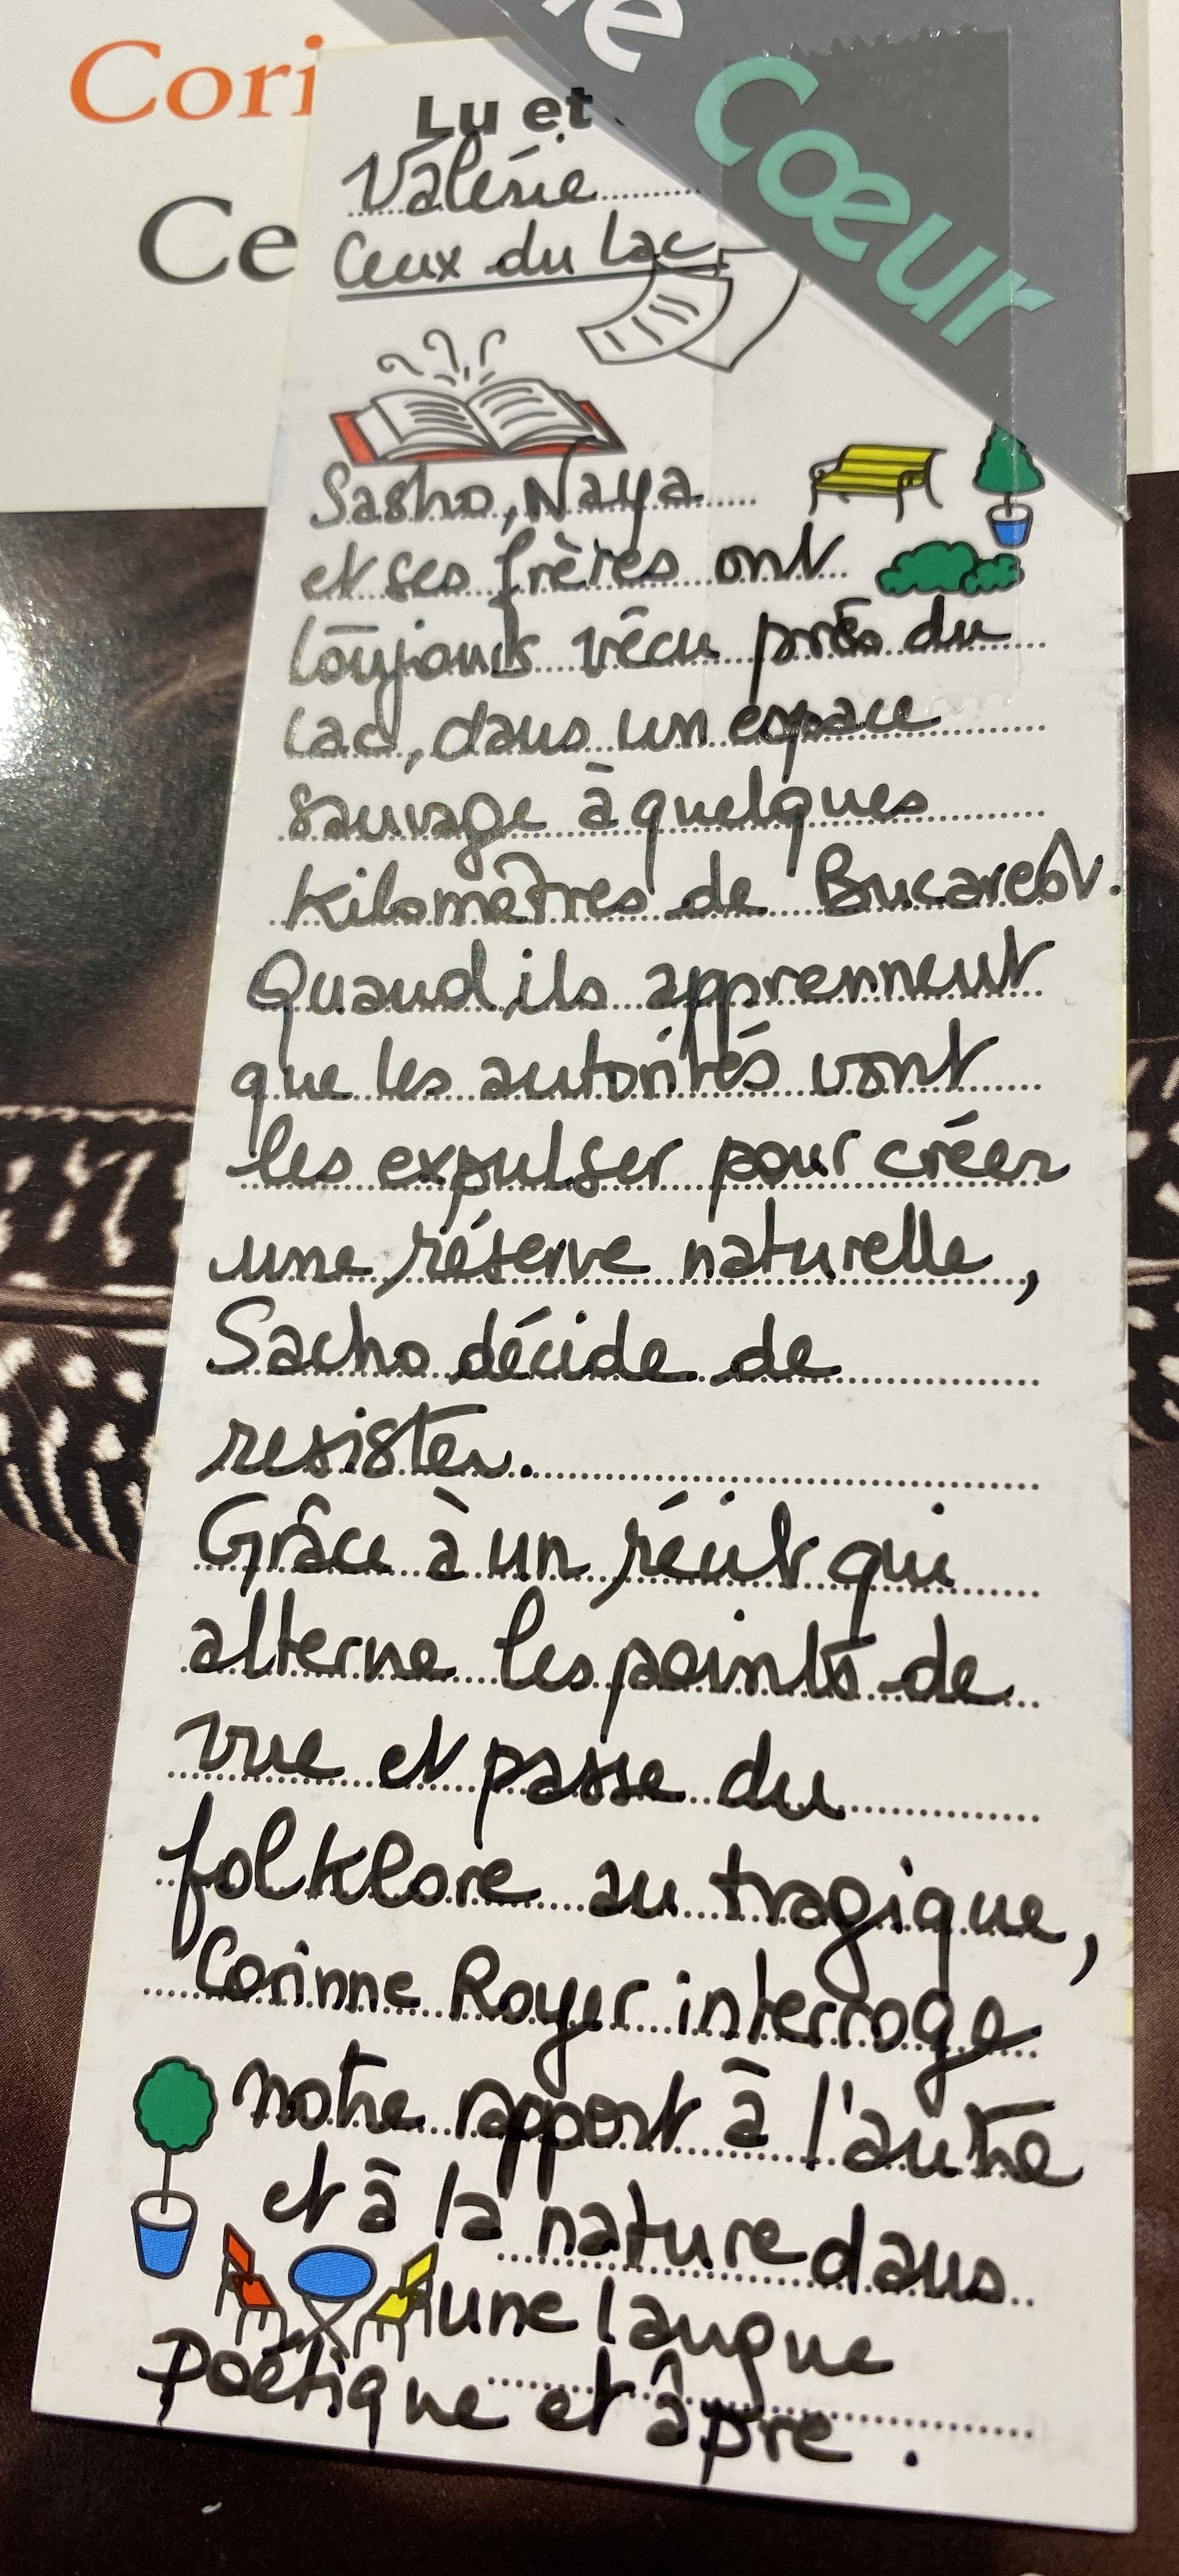 Cori
Ce
Cœur
Lu et
Valérie
Ceux du Lac
Sasho, Naya
et ses frères ont
toujours vécu près du
lac, dans un espace
sauvage à quelques
kilomètres de Bucarest.
Quand ils apprennent
que les autorités vont
les expulser pour créer
une réserve naturelle,
Sacho décide de
resister.
Grâce à un récit qui
alterne les points de
vue et passe du
folklore au tragique,
Corinne Royer interroge
notre rapport à l'autre
et à la nature dans
une langue
Poétique et âpre.